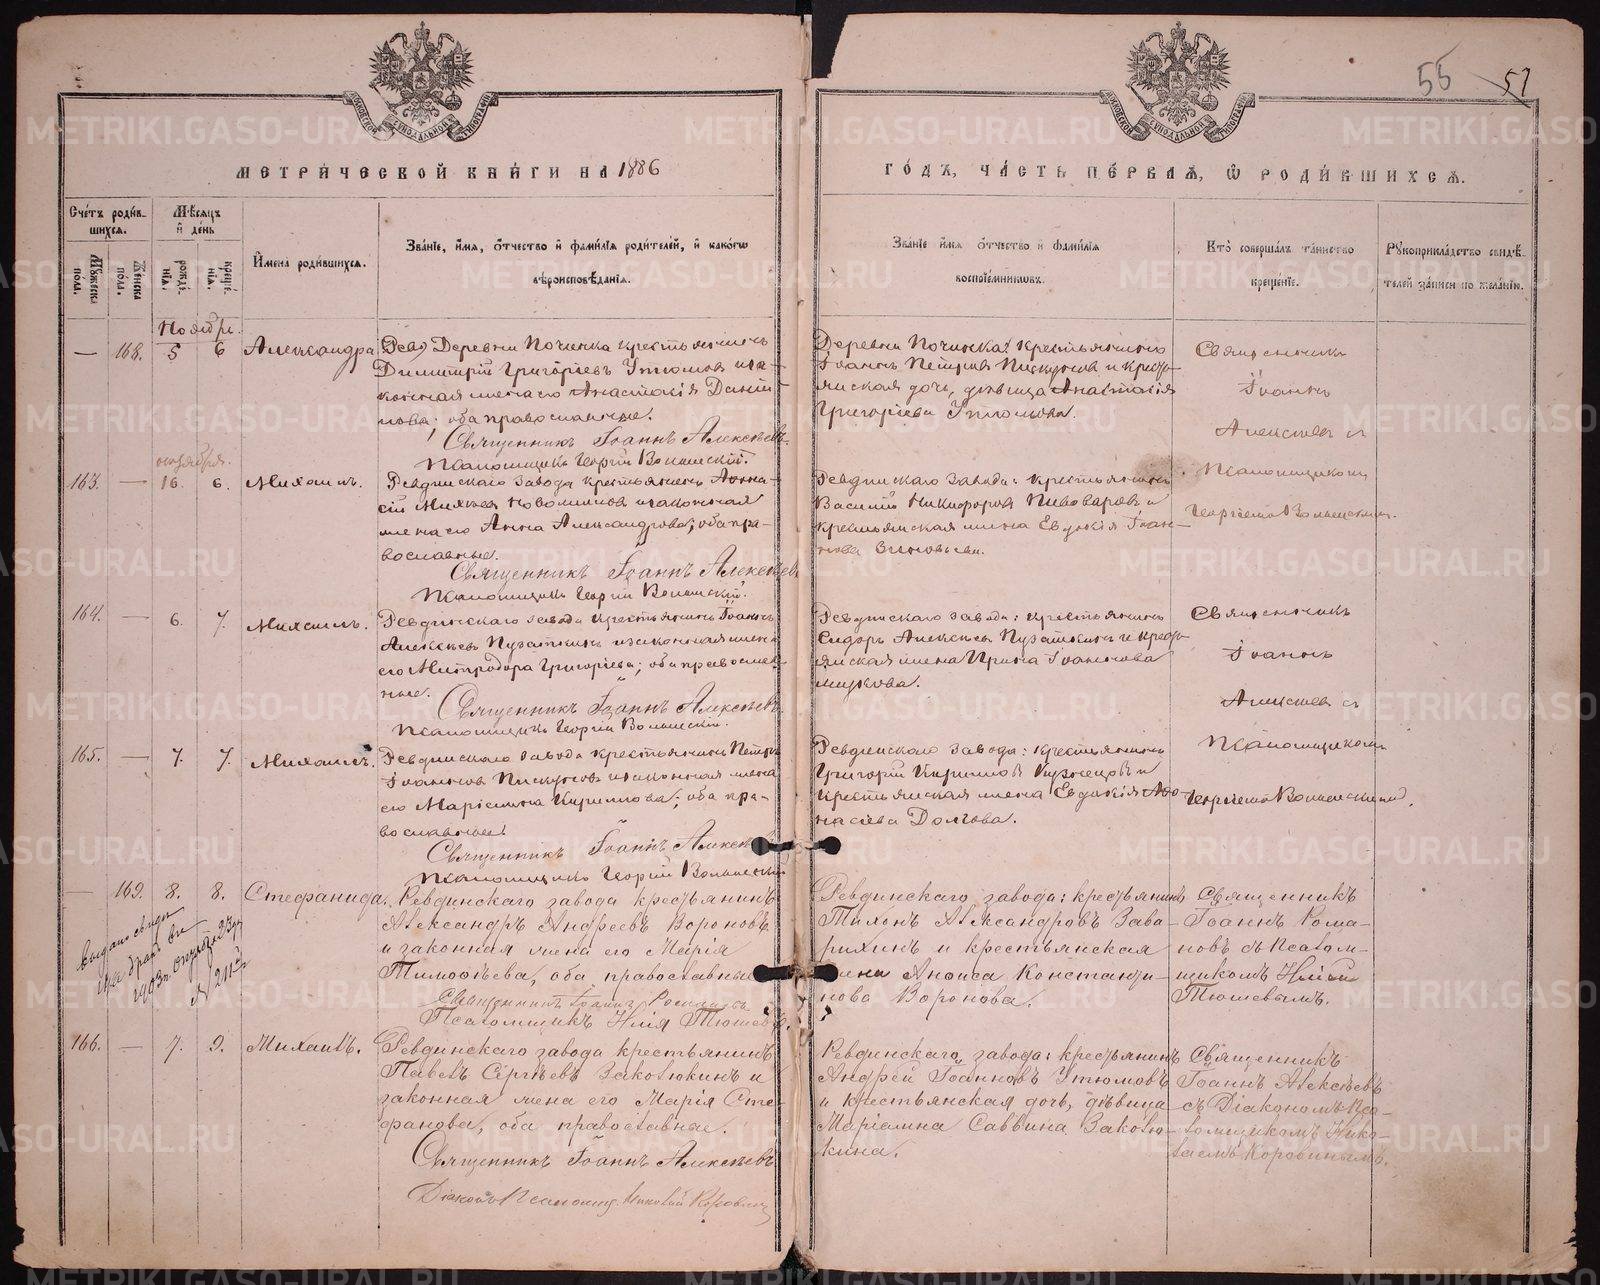 55 57
МЕТРИ́ЧЕСКОЙ КНИ́ГИ НА 1886
ГО́ДЪ, ЧА́СТЬ ПЕ́РВАЯ, Ѡ РОДИ́ВШИХСЯ.
Сче́тъ роди́вшихся.
Мѣ́сяцъ и де́нь
Мꙋ́жеска по́ла.
Же́нска по́ла.
рожде́нїя.
креще́нїя.
И́мена роди́вшихся.
Зва́нїе, и́мя, о́тчество и фами́лїя роди́телей, и како́гѡ
вѣроисповѣ́данїя.
Зва́нїе и́мя о́тчество и фами́лїя
воспрїе́мникѡвъ.
Кто̀ соверша́лъ та́инство
креще́нїе.
Рꙋкоприкла́дство свидѣ́-
телей за́писи по жела́нїю.
Ноября.
— 168. 5 6 Александра
Деревни Починка крестьянинъ
Димитрій Григоріевъ Утюмовъ и за-
конная жена его Анастасія Даніи-
лова; оба православные.
Священникъ Іоаннъ Алексѣевъ
Псаломщикъ Георгій
Деревни Починка: крестьянинъ
Іоаннъ Петровъ Пискуновъ и кресть-
янская дочь, дѣвица Анастасія
Григоріева Утюмова.
Священникъ
Іоаннъ
Алексѣевъ съ
Псаломщикомъ
Георгіемъ
октября.
163. — 16. 6. Михаилъ.
Ревдинскаго завода крестьянинъ Аѳана-
сій
жена его Анна Александрова; оба пра-
вославные.
Священникъ Іоаннъ Алексѣевъ
Псаломщикъ Георгій
Ревдинскаго завода: крестьянинъ
Василій Никифоровъ Пивоваровъ и
крестьянская жена Евдокія Іоан-
нова Зиновьева.
164. — 6. 7. Михаилъ.
Ревдинскаго завода крестьянинъ Іоаннъ
Алексѣевъ Пузаткинъ и законная жена
его Митродора Григоріева; оба православ-
ные.
Священникъ Іоаннъ Алексѣевъ
Псаломщикъ Георгій
Ревдинскаго завода: крестьянинъ
Сидоръ Алексѣевъ Пузаткинъ и кресть-
янская жена Ирина Іоаннова
Священникъ
Іоаннъ
Алексѣевъ съ
Псаломщикомъ
Георгіемъ
165. — 7. 7. Михаилъ.
Ревдинскаго завода крестьянинъ Петръ
Іоанновъ Пискуновъ и законная жена
его Маріамна Кириллова; оба пра-
вославные.
Священникъ Іоаннъ Алексѣевъ
Псаломщикъ Георгій
Ревдинскаго завода: крестьянинъ
Григорій Кирилловъ Кузнецовъ и
крестьянская жена Евдокія Аѳа-
насіева Долгова.
— 169. 8. 8. Стефанида.
Ревдинскаго завода крестьянинъ
Александръ Андреевъ Вороновъ
и законная жена его Марія
Тимоѳѣева, оба православные
Священникъ Іоаннъ Романовъ
Псаломщикъ Илія Тюшевъ.
Ревдинскаго завода: крестьянинъ
Тихонъ Александровъ Зава-
рихинъ и крестьянская
жена Анѳиса Константи-
нова Воронова.
Священникъ
Іоаннъ Рома-
новъ съ Псалом-
щикомъ Иліей
Тюшевымъ.
Выдано свидѣ
на бракъ въ
1903г.
№ 211
166. — 7. 9. Михаилъ.
Ревдинскаго завода крестьянинъ
Павелъ Сергѣевъ Заколюкинъ и
законная жена его Марія Сте-
фанова, оба православные.
Священникъ Іоаннъ Алексѣевъ
Діаконъ Псаломщ. Николай Коровинъ
Ревдинскаго завода: крестьянинъ
Андрей Іоанновъ Утюмовъ
и крестьянская дочь, дѣвица
Маріамна Саввина Заколю-
кина.
Священникъ
Іоаннъ Алексѣевъ
съ Діакономъ Пса-
ломщикомъ Нико-
лаемъ Коровинымъ.
METRIKI.GASO-URAL.RU